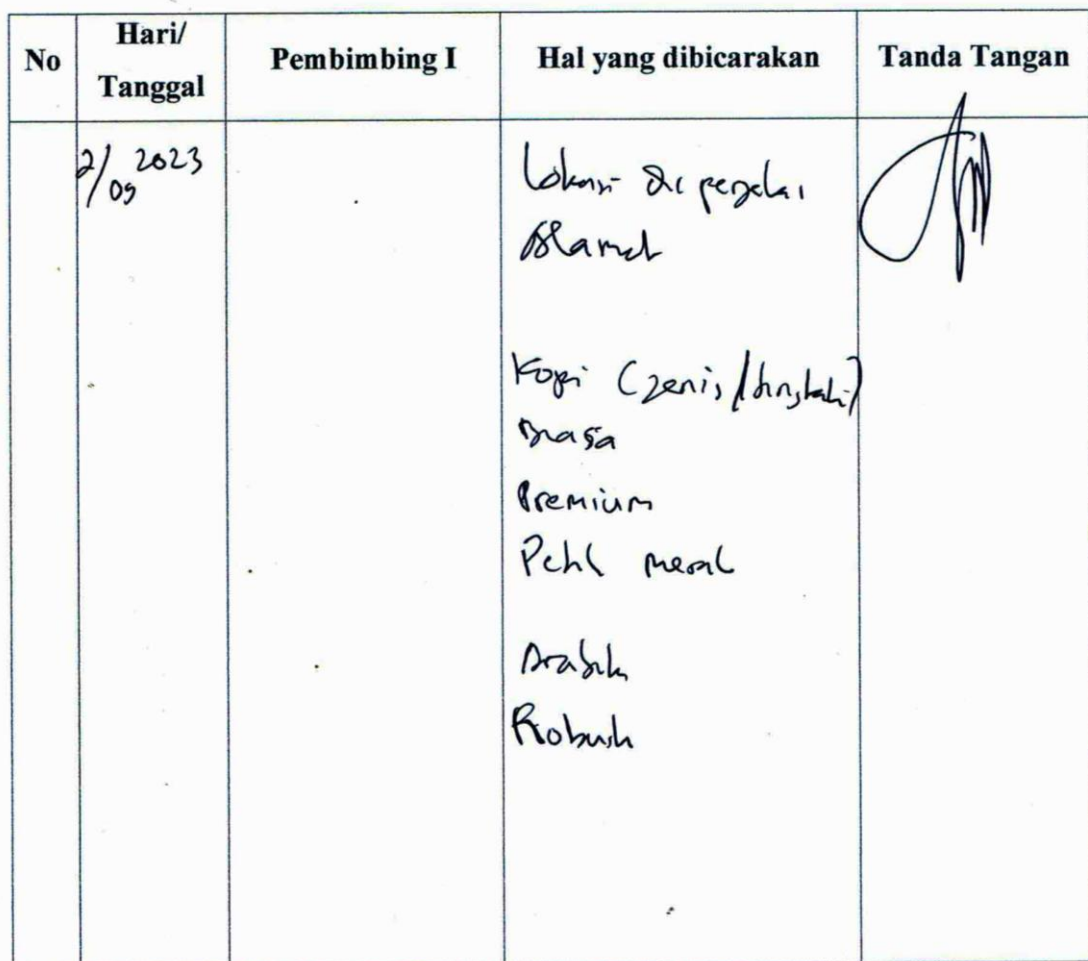 No
Hari/
Tanggal
Pembimbing I
Hal yang dibicarakan
Tanda Tangan
2/09 2023
Lokasi di perjelas
Alamat
Kopi (Jenis/tingkat)
Biasa
Premium
Petik merah
Arabik
Robusta